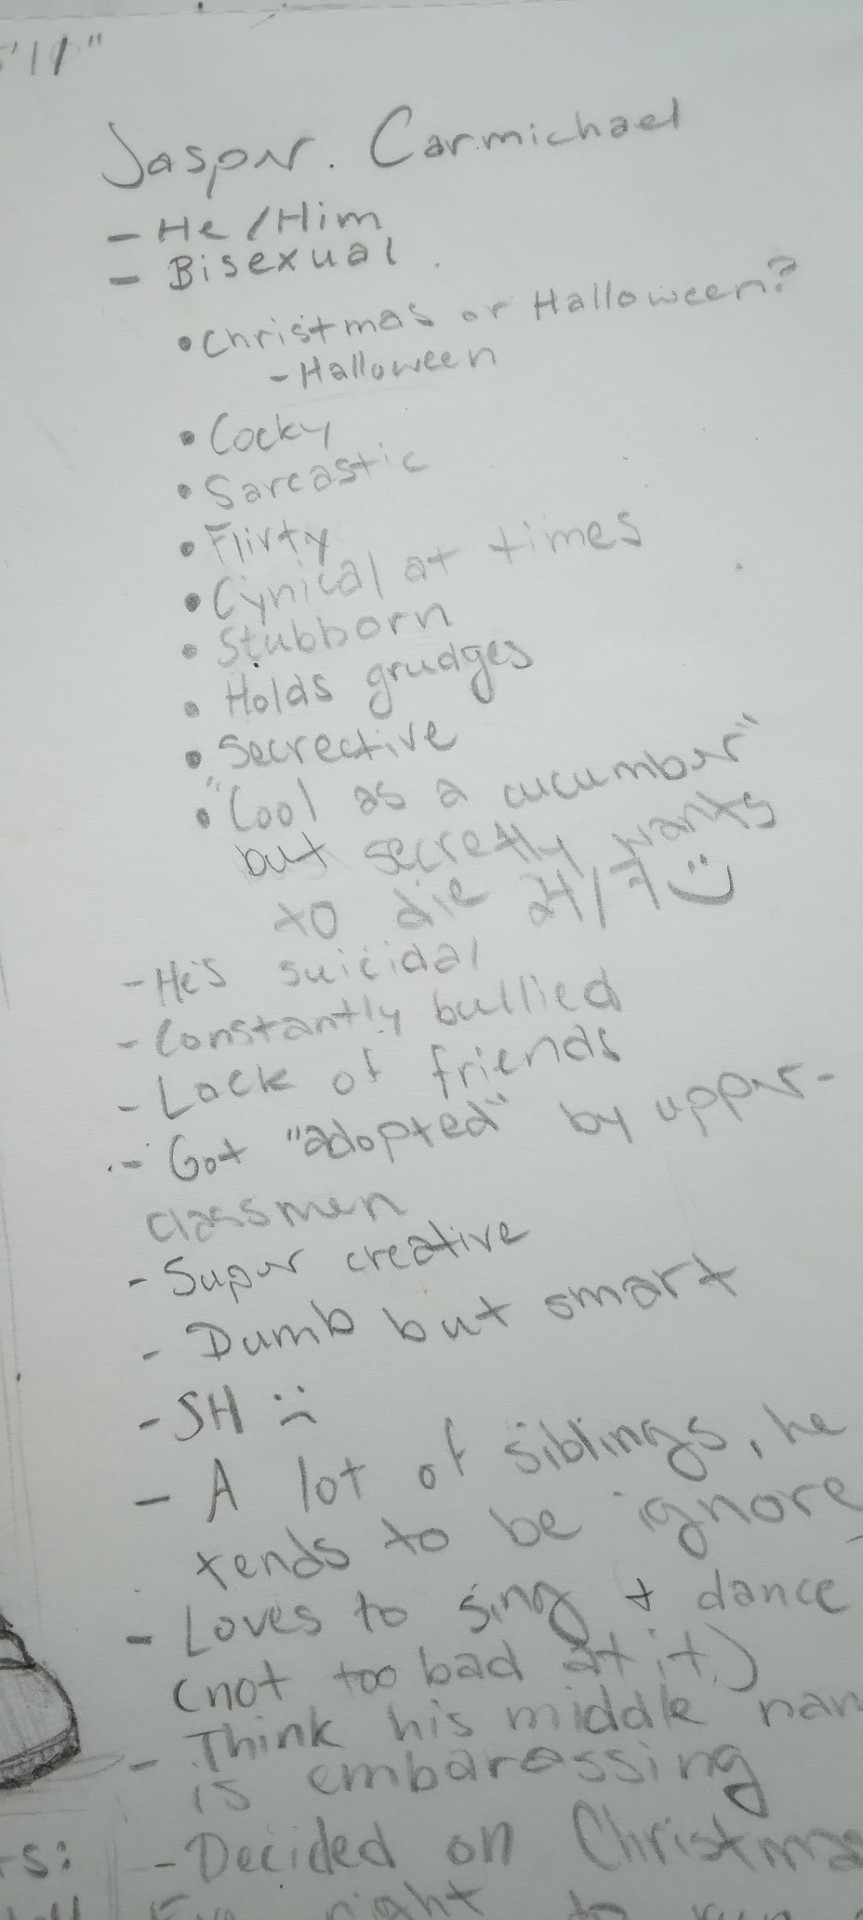 '11"
Jasper. Carmichael
- He/Him
- Bisexual.
• Christmas or Halloween?
- Halloween
• Cocky
• Sarcastic
• Flirty
• Cynical at times
• Stubborn
• Holds grudges
• Secrective
• "Cool as a cucumber"
but secretly wants
to die 24/7 :)
- He's suicidal
- Constantly bullied
- Lack of friends
- Got "adopted" by upper-
classmen
- Super creative
- Dumb but smart
- SH :(
- A lot of siblings, he
tends to be ignore
- Loves to sing + dance
(not too bad at it)
- Think his middle nam
is embarassing
- Decided on Christmas
s:
right to run